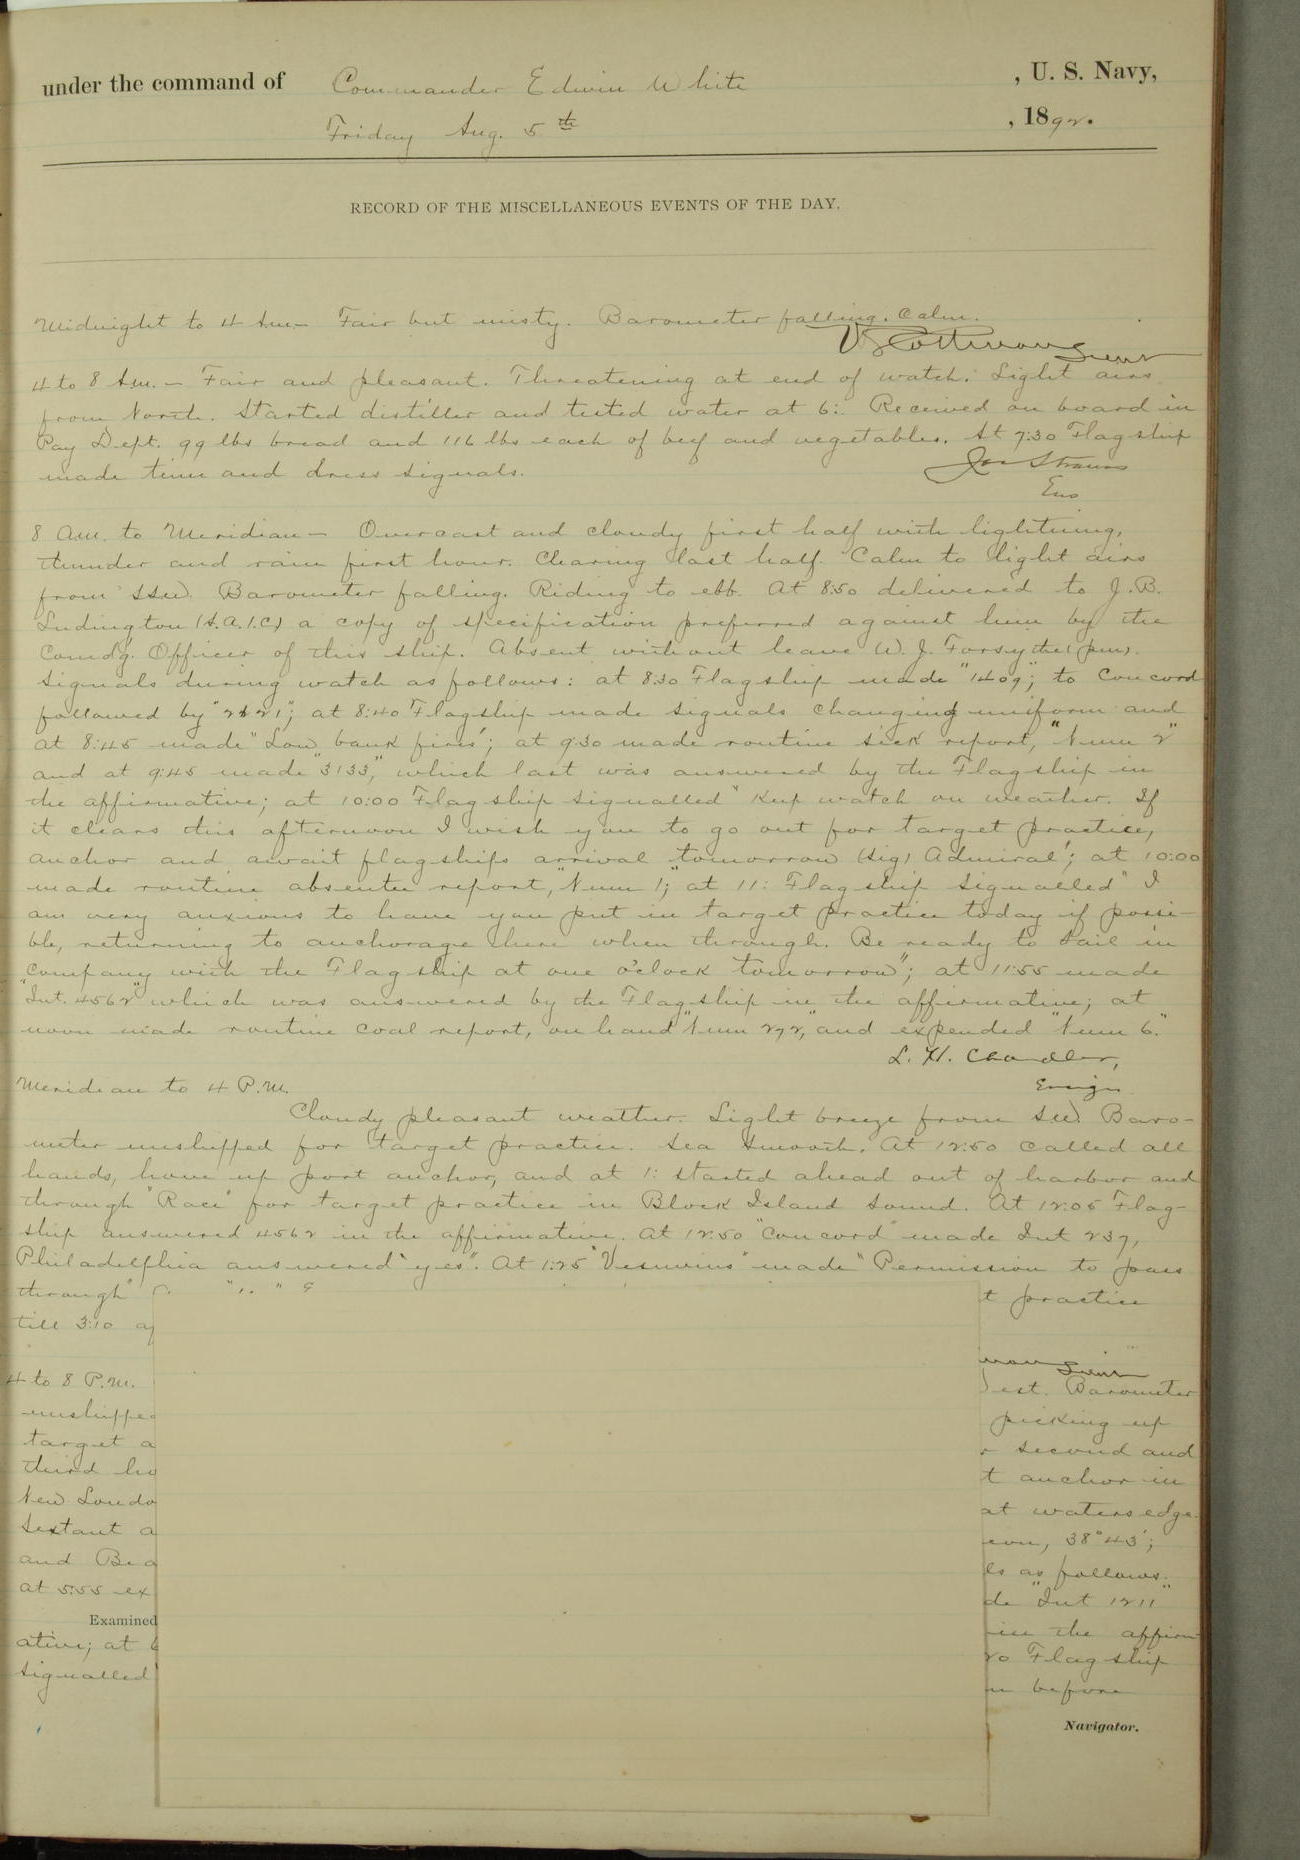 under the command of Commander Edwin White , U. S. Navy,
Friday Aug. 5th , 1892.
RECORD OF THE MISCELLANEOUS EVENTS OF THE DAY.
Midnight to 4 Am— Fair but misty. Barometer falling. Calm.
Lieut
4 to 8 Am.— Fair and pleasant. Threatening at end of watch. Light airs
from North. Started distiller and tested water at 6:. Received on board in
Pay Dept. 99 lbs bread and 116 lbs each of beef and vegetables. At 7:30 Flagship
made time and dress signals.
Jos Strauss
Ens
8 am. to Meridian— Overcast and cloudy first half with lightning,
thunder and rain first hour. Clearing last half. Calm to light airs
from SSW. Barometer falling. Riding to ebb. At 8:50 delivered to J. B.
Ludington (S.A.1.C.) a copy of specification preferred against him by the
Comdg. Officer of this ship. Absent without leave W. J. Forsythe
Signals during watch as follows: at 8:30 Flagship made "1409"; to Concord
followed by "2821"; at 8:40 Flagship made signals changing uniform and
at 8:45 made "Low bank fires"; at 9:30 made routine sick report, "Num 2"
and at 9:45 made "3133," which last was answered by the Flagship in
the affirmative; at 10:00 Flagship signalled "Keep watch on weather. If
it clears this afternoon I wish you to go out for target practice,
anchor and await flagships arrival tomorrow (sig) Admiral"; at 10:00
made routine absentee report, "Num 1;" at 11: Flagship signalled "I
am very anxious to have you put in target practice today if possi-
ble, returning to anchorage here when through. Be ready to sail in
company with the Flagship at one o'clock tomorrow"; at 11:55 made
"Int. 4562" which was answered by the Flagship in the affirmative; at
noon made routine coal report, on hand "Num 272," and expended "Num 6."
L. H. Chandler,
Ensign
Meridian to 4 P.M.
Cloudy pleasant weather. Light breeze from SW. Baro-
meter unshipped for target practice. Sea smooth. At 12:50 called all
hands, hove up port anchor, and at 1: started ahead out of harbor and
through "Race" for target practice in Block Island Sound. At 12:05 Flag-
ship answered 4562 in the affirmative. At 12:50 "Concord" made Int 237,
Philadelphia answered "yes". At 1:25 "Vesuvius" made "Permission to pass
through" t practice
till 3:10
Lieut
4 to 8 P.M. est. Barometer
unshipped picking up
target a second and
third ho t anchor in
New Londo at waters edge.
Sextant a eon, 38°43';
and Bea ls as follows:
at 5:55 ex de "Int 1211"
Examined in the affirm-
ative; at 6 20 Flagship
signalled n before
Navigator.